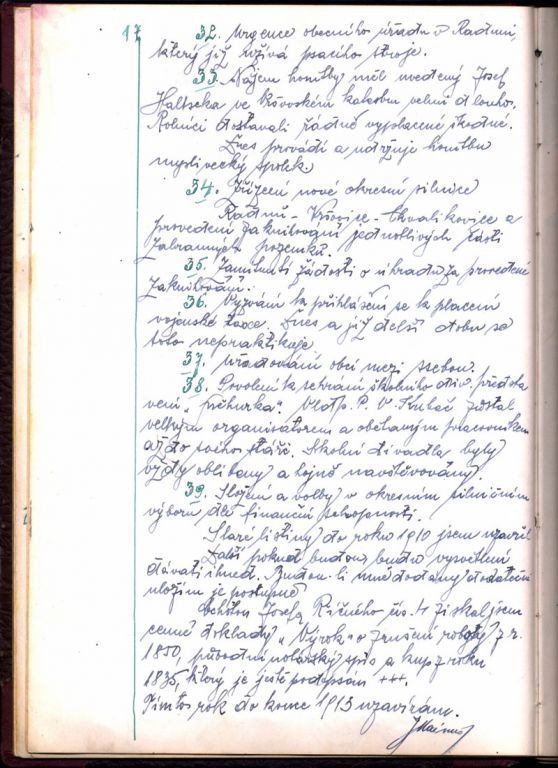 17
32. Urgence obecního úřadu v Radomi,
který již užívá psacího stroje.
33. Nájem honitby měl uvedený Josef
Haltseka ve Kšovoském katastru velmi dlouho.
Rolníci dostávali řádně vyplacené škodné.
Dnes provádí a udržuje honitbu
myslivecký spolek.
34. Zřízení nové okresní silnice
Radmů - Vršovice - Chvalíkovice a
provedení zaknihování jednotlivých částí
zabraných pozemků.
35. Zamítnutí žádosti o úhradu za provedené
zaknihování.
36. Vyzvání k přihlášení se k placení
vojenské taxe. Dnes a již delší dobu se
toto nepraktikuje
37. Úřadování obcí mezi ssebou.
38. Povolení k sehrání školního div. představení
vení „Pěthurka" Vldp. P. V. Kubáč zůstal
velkým organisátorem a obětavým pracovníkem
až do svého stáří. Školní divadla byly
vždy oblíbany a hojně navštěvovány.
39. Složení a volby v okresním silničním
výboru dle finanční schopnosti.
Staré listiny do roku 1910 jsem uzavřel
Další pokud budou, budu vysvětlení
dávati ihned. Budou-li mně dodány dodatečně
uložím je postupně
Ochotou Josefa Říčného čís. 4 získal jsem
cenné doklady „Výrok" o zrušení roboty z r.
1850, původní notářský spis a kup z roku
1835, který je ještě podepsán +++.
Tímto rok do konce 1913 uzavírám.